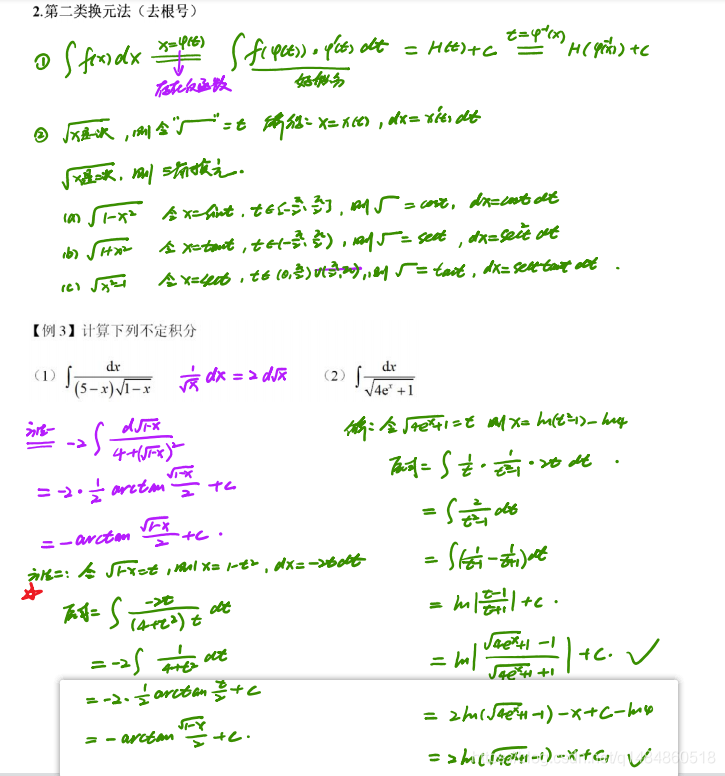 2.第二类换元法（去根号）
① ∫f(x)dx x=φ(t) ∫f(φ(t))·φ'(t)dt = H(t)+C t=φ⁻¹(x) H(φ⁻¹(x))+C
存在反函数
② √x是一次，则令"√‾"=t 解得：x=x(t)，dx=x'(t)dt
√x是二次，则三角换元.
(a) √1-x² 令x=sint，t∈[-π/2, π/2]，则√‾=cost，dx=costdt
(b) √1+x² 令x=tant，t∈(-π/2, π/2)，则√‾=sect，dx=sec²tdt
(c) √x²-1 令x=sect，t∈(0, π/2) 则√‾=tant，dx=sect tant dt.
【例 3】计算下列不定积分
（1）∫dx/((5-x)√1-x) 1/√x dx = 2d√x （2）∫dx/√4eˣ+1
方法一 -2∫d√1-x/(4+(√1-x)²)
= -2·1/2 arctan √1-x/2 +C
= -arctan √1-x/2 +C.
方法二：令√1-x=t，则x=1-t²，dx=-2tdt
原式= ∫-2t/((4+t²)t) dt
= -2∫1/(4+t²) dt
= -2·1/2 arctan t/2 +C
= -arctan √1-x/2 +C.
解：令√4eˣ+1=t 则x=ln(t²-1)-ln4
原式= ∫1/t·1/(t²-1)·2t dt.
= ∫2/(t²-1) dt
= ∫(1/(t-1) - 1/(t+1))dt
= ln|(t-1)/(t+1)|+C.
= ln|(√4eˣ+1 -1)/(√4eˣ+1 +1)|+C. ✓
= 2ln(√4eˣ+1 -1)-x+C-ln4
= 2ln(√4eˣ+1 -1)-x+C. ✓